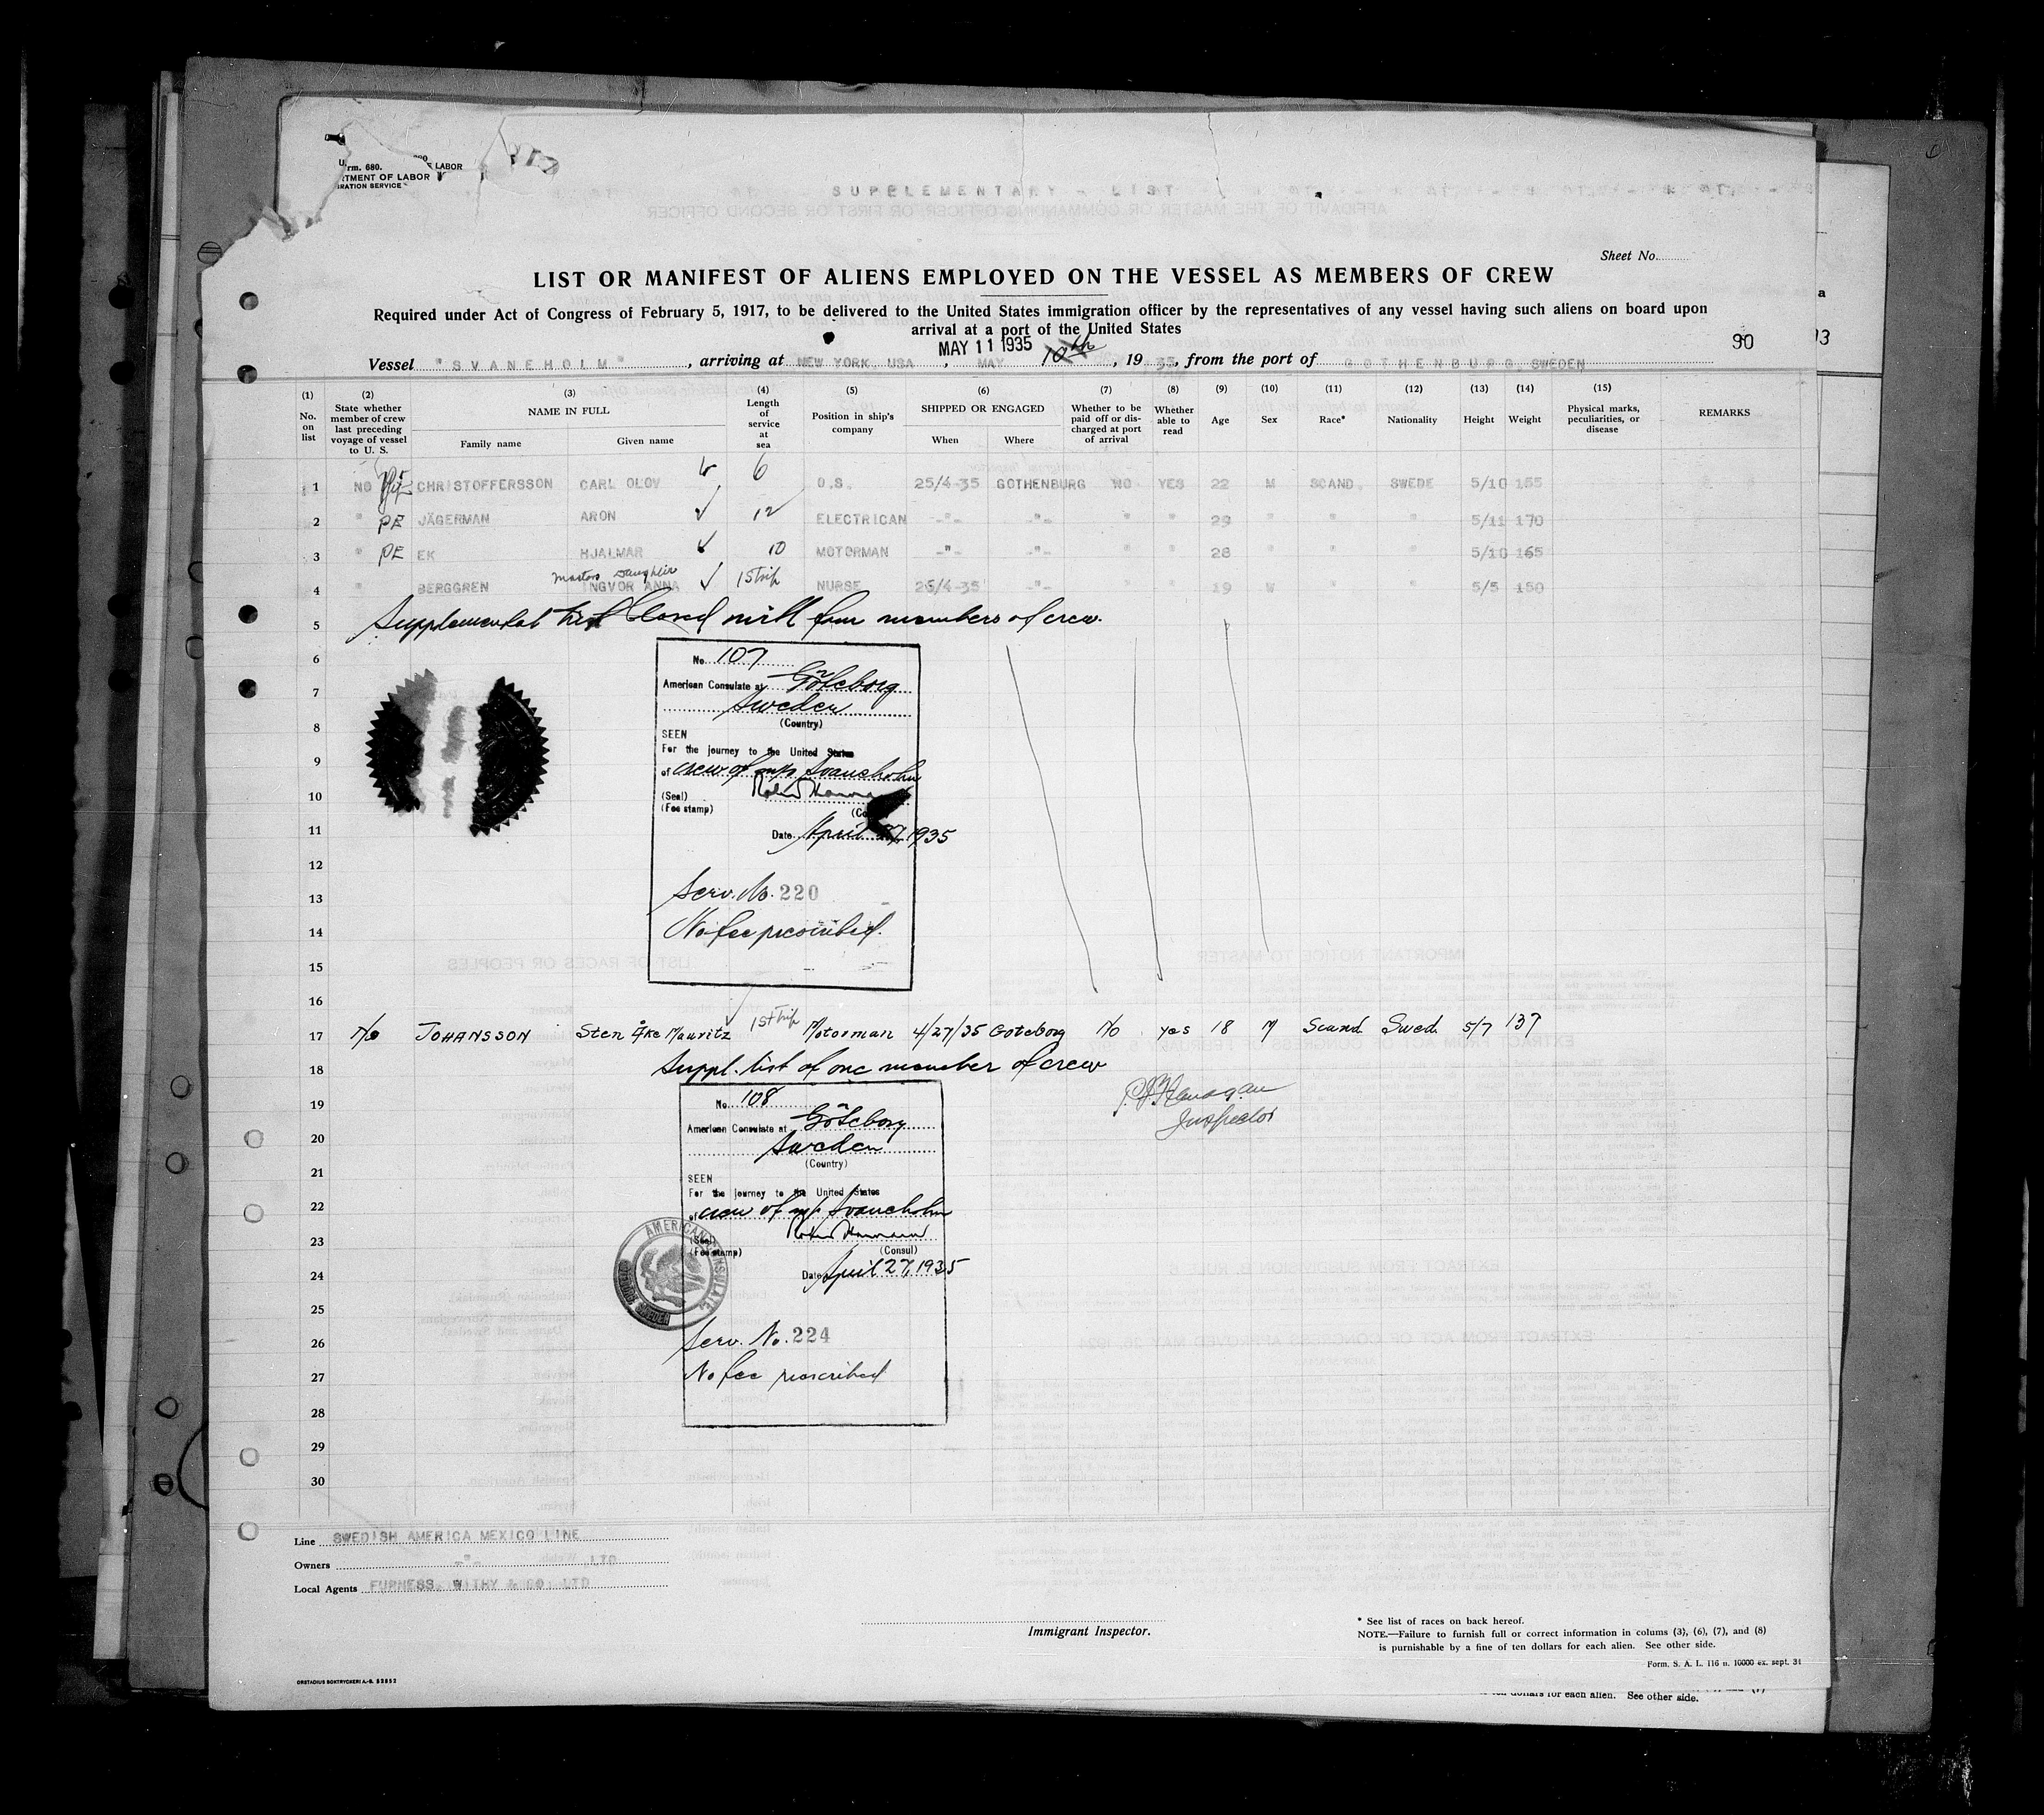 rm. 680. OF LABOR
RTMENT OF LABOR
IGRATION SERVICE
SUPPLEMENTARY - LIST
Sheet No.
LIST OR MANIFEST OF ALIENS EMPLOYED ON THE VESSEL AS MEMBERS OF CREW
Required under Act of Congress of February 5, 1917, to be delivered to the United States immigration officer by the representatives of any vessel having such aliens on board upon
arrival at a port of the United States
MAY 11 1935
90
Vessel "SVANEHOLM", arriving at NEW YORK, USA, MAY 10th, 1935, from the port of GOTHENBURG, SWEDEN
(1) No. on list (2) State whether member of crew last preceding voyage of vessel to U. S. (3) NAME IN FULL Family name Given name (4) Length of service at sea (5) Position in ship's company (6) SHIPPED OR ENGAGED When Where (7) Whether to be paid off or discharged at port of arrival (8) Whether able to read (9) Age (10) Sex (11) Race* (12) Nationality (13) Height (14) Weight (15) Physical marks, peculiarities, or disease REMARKS
1 NO CHRISTOFFERSSON CARL OLOV 6 O.S. 25/4-35 GOTHENBURG NO YES 22 M SCAND. SWEDE 5/10 155
2 " PE JÄGERMAN ARON 12 ELECTRICAN -"- -"- " " 29 " " " 5/11 170
3 " PE EK HJALMAR 10 MOTORMAN -"- -"- " " 28 " " " 5/10 165
Masters Daughter
4 " BERGGREN INGVOR ANNA 1st trip NURSE 26/4-35 -"- " " 19 W " " 5/5 150
5 Supplemental list closed with four members of crew.
6 No. 107
7 American Consulate at Göteborg
Sweden
8 (Country)
SEEN
For the journey to the United States
9 of crew of m/s Svaneholm
10 (Seal)
(Fee stamp)
11 Date April 27, 1935
12
13 Serv. No. 220
14 No fee prescribed.
15
16
17 No JOHANSSON Sten Åke Mauritz 1st trip Motorman 4/27/35 Goteborg No yes 18 M Scand. Swed. 5/7 137
18 Suppl. list of one member of crew
19 No. 108
American Consulate at Göteborg
20 Sweden
(Country)
21 SEEN
For the journey to the United States
22 of crew of m/s Svaneholm
23 (Seal)
(Fee stamp) (Consul)
24 Date April 27, 1935
25
26 Serv. No. 224
27 No fee prescribed
28
29
30
P. J. Flanagan
Inspector
AMERICAN CONSULATE
SWEDEN
Line SWEDISH AMERICA MEXICO LINE
Owners -"- LTD
Local Agents FURNESS, WITHY & CO. LTD
Immigrant Inspector.
* See list of races on back hereof.
NOTE.—Failure to furnish full or correct information in colums (3), (6), (7), and (8)
is purnishable by a fine of ten dollars for each alien. See other side.
Form. S. A. L. 116 n. 10000 ex. sept. 31
ORSTADIUS BOKTRYCKERI A.-B. 52852
ten dollars for each alien. See other side.